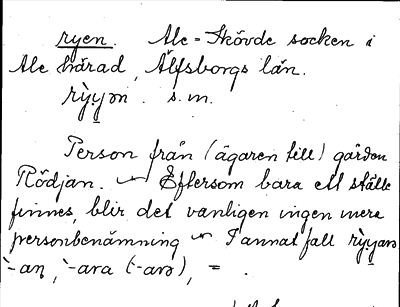 ryen. Ale-Skövde socken i
Ale härad, Älfsborgs län.
rỳyən. s.m.
Person från (ägaren till) gården
Rödjan. ~ Eftersom bara ett ställe
finnes, blir det vanligen ingen mera
personbenämning ~ I annat fall rỳyarə
`-aṇ, `-ara (`-arə), = .